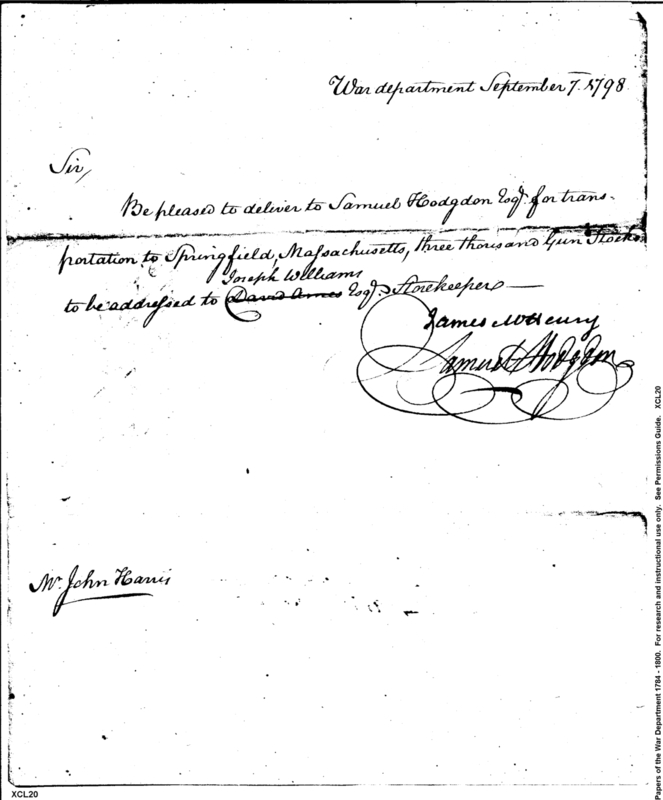 War department September 7. 1798
Sir,
Be pleased to deliver to Samuel Hodgdon Esqr. for trans-
portation to Springfield, Massachusetts, three thousand Gun Stocks
Joseph Williams
to be addressed to David Ames Esqr. Storekeeper
James McHenry
Samuel Hodgdon
Mr. John Harris
XCL20
Papers of the War Department 1784 - 1800. For research and instructional use only. See Permissions Guide. XCL20